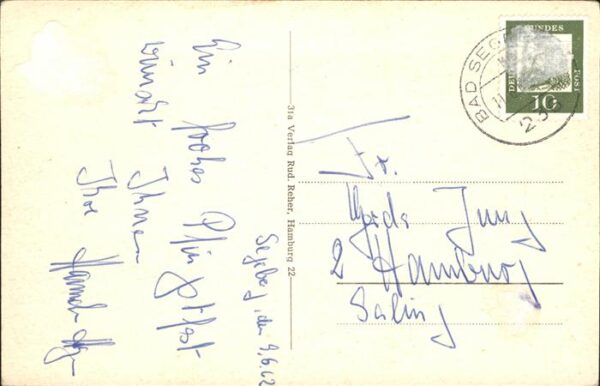 Ein frohes Pfingstfest
wünscht Ihnen
Ihre
Segeberg, den 9.6.62
31a Verlag Rud. Reher, Hamburg 22
BAD SEG
DEUTSCHE BUNDESPOST
10
Fr.
Jung
2 Hamburg